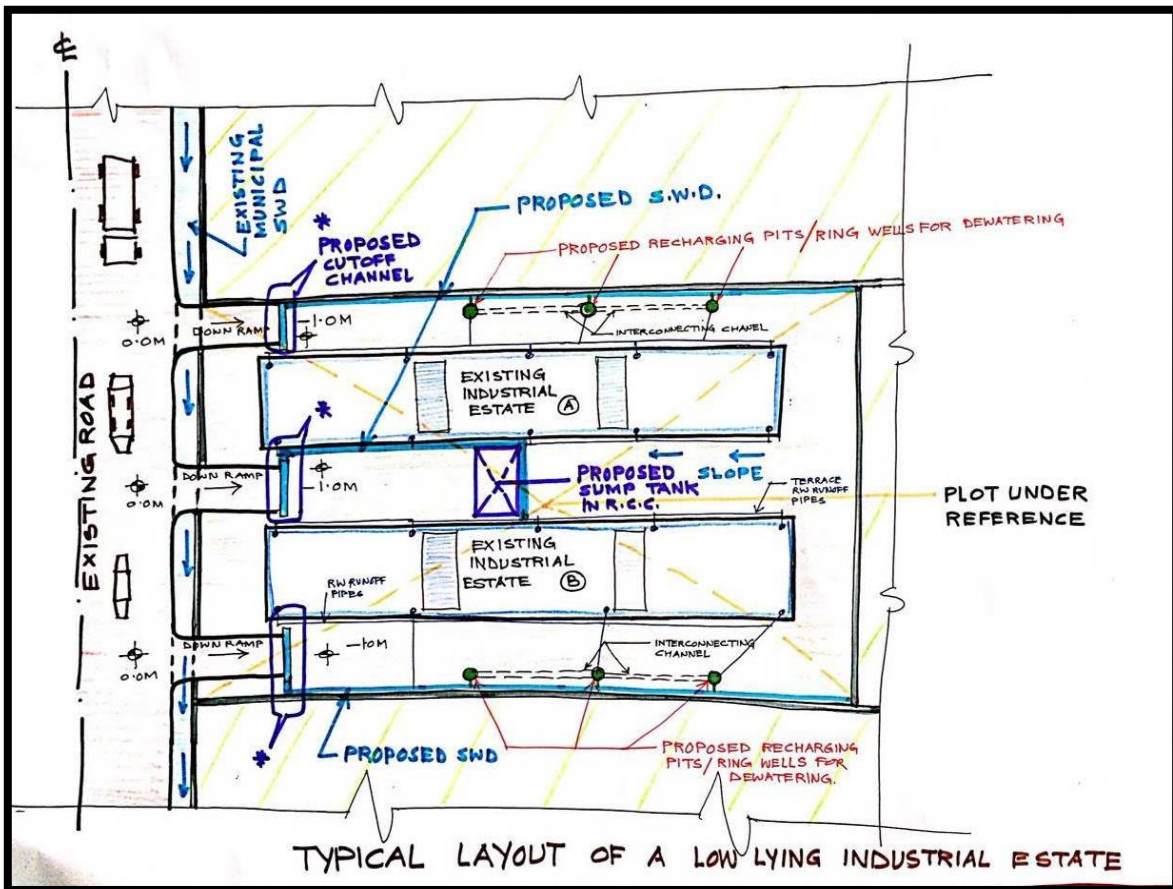 ℄
EXISTING
MUNICIPAL
SWD
*
PROPOSED
CUTOFF
CHANNEL
PROPOSED S.W.D.
PROPOSED RECHARGING PITS/RING WELLS FOR DEWATERING
0.0M
DOWN RAMP
-1.0M
INTERCONNECTING CHANEL
EXISTING
INDUSTRIAL
ESTATE A
*
EXISTING ROAD
0.0M
DOWN RAMP
-1.0M
PROPOSED
SUMP TANK
IN R.C.C.
SLOPE
TERRACE
RW RUNOFF
PIPES
PLOT UNDER
REFERENCE
EXISTING
INDUSTRIAL
ESTATE B
RW RUNOFF
PIPES
0.0M
DOWN RAMP
-1.0M
INTERCONNECTING
CHANNEL
*
PROPOSED SWD
PROPOSED RECHARGING
PITS/RING WELLS FOR
DEWATERING.
TYPICAL LAYOUT OF A LOW LYING INDUSTRIAL ESTATE